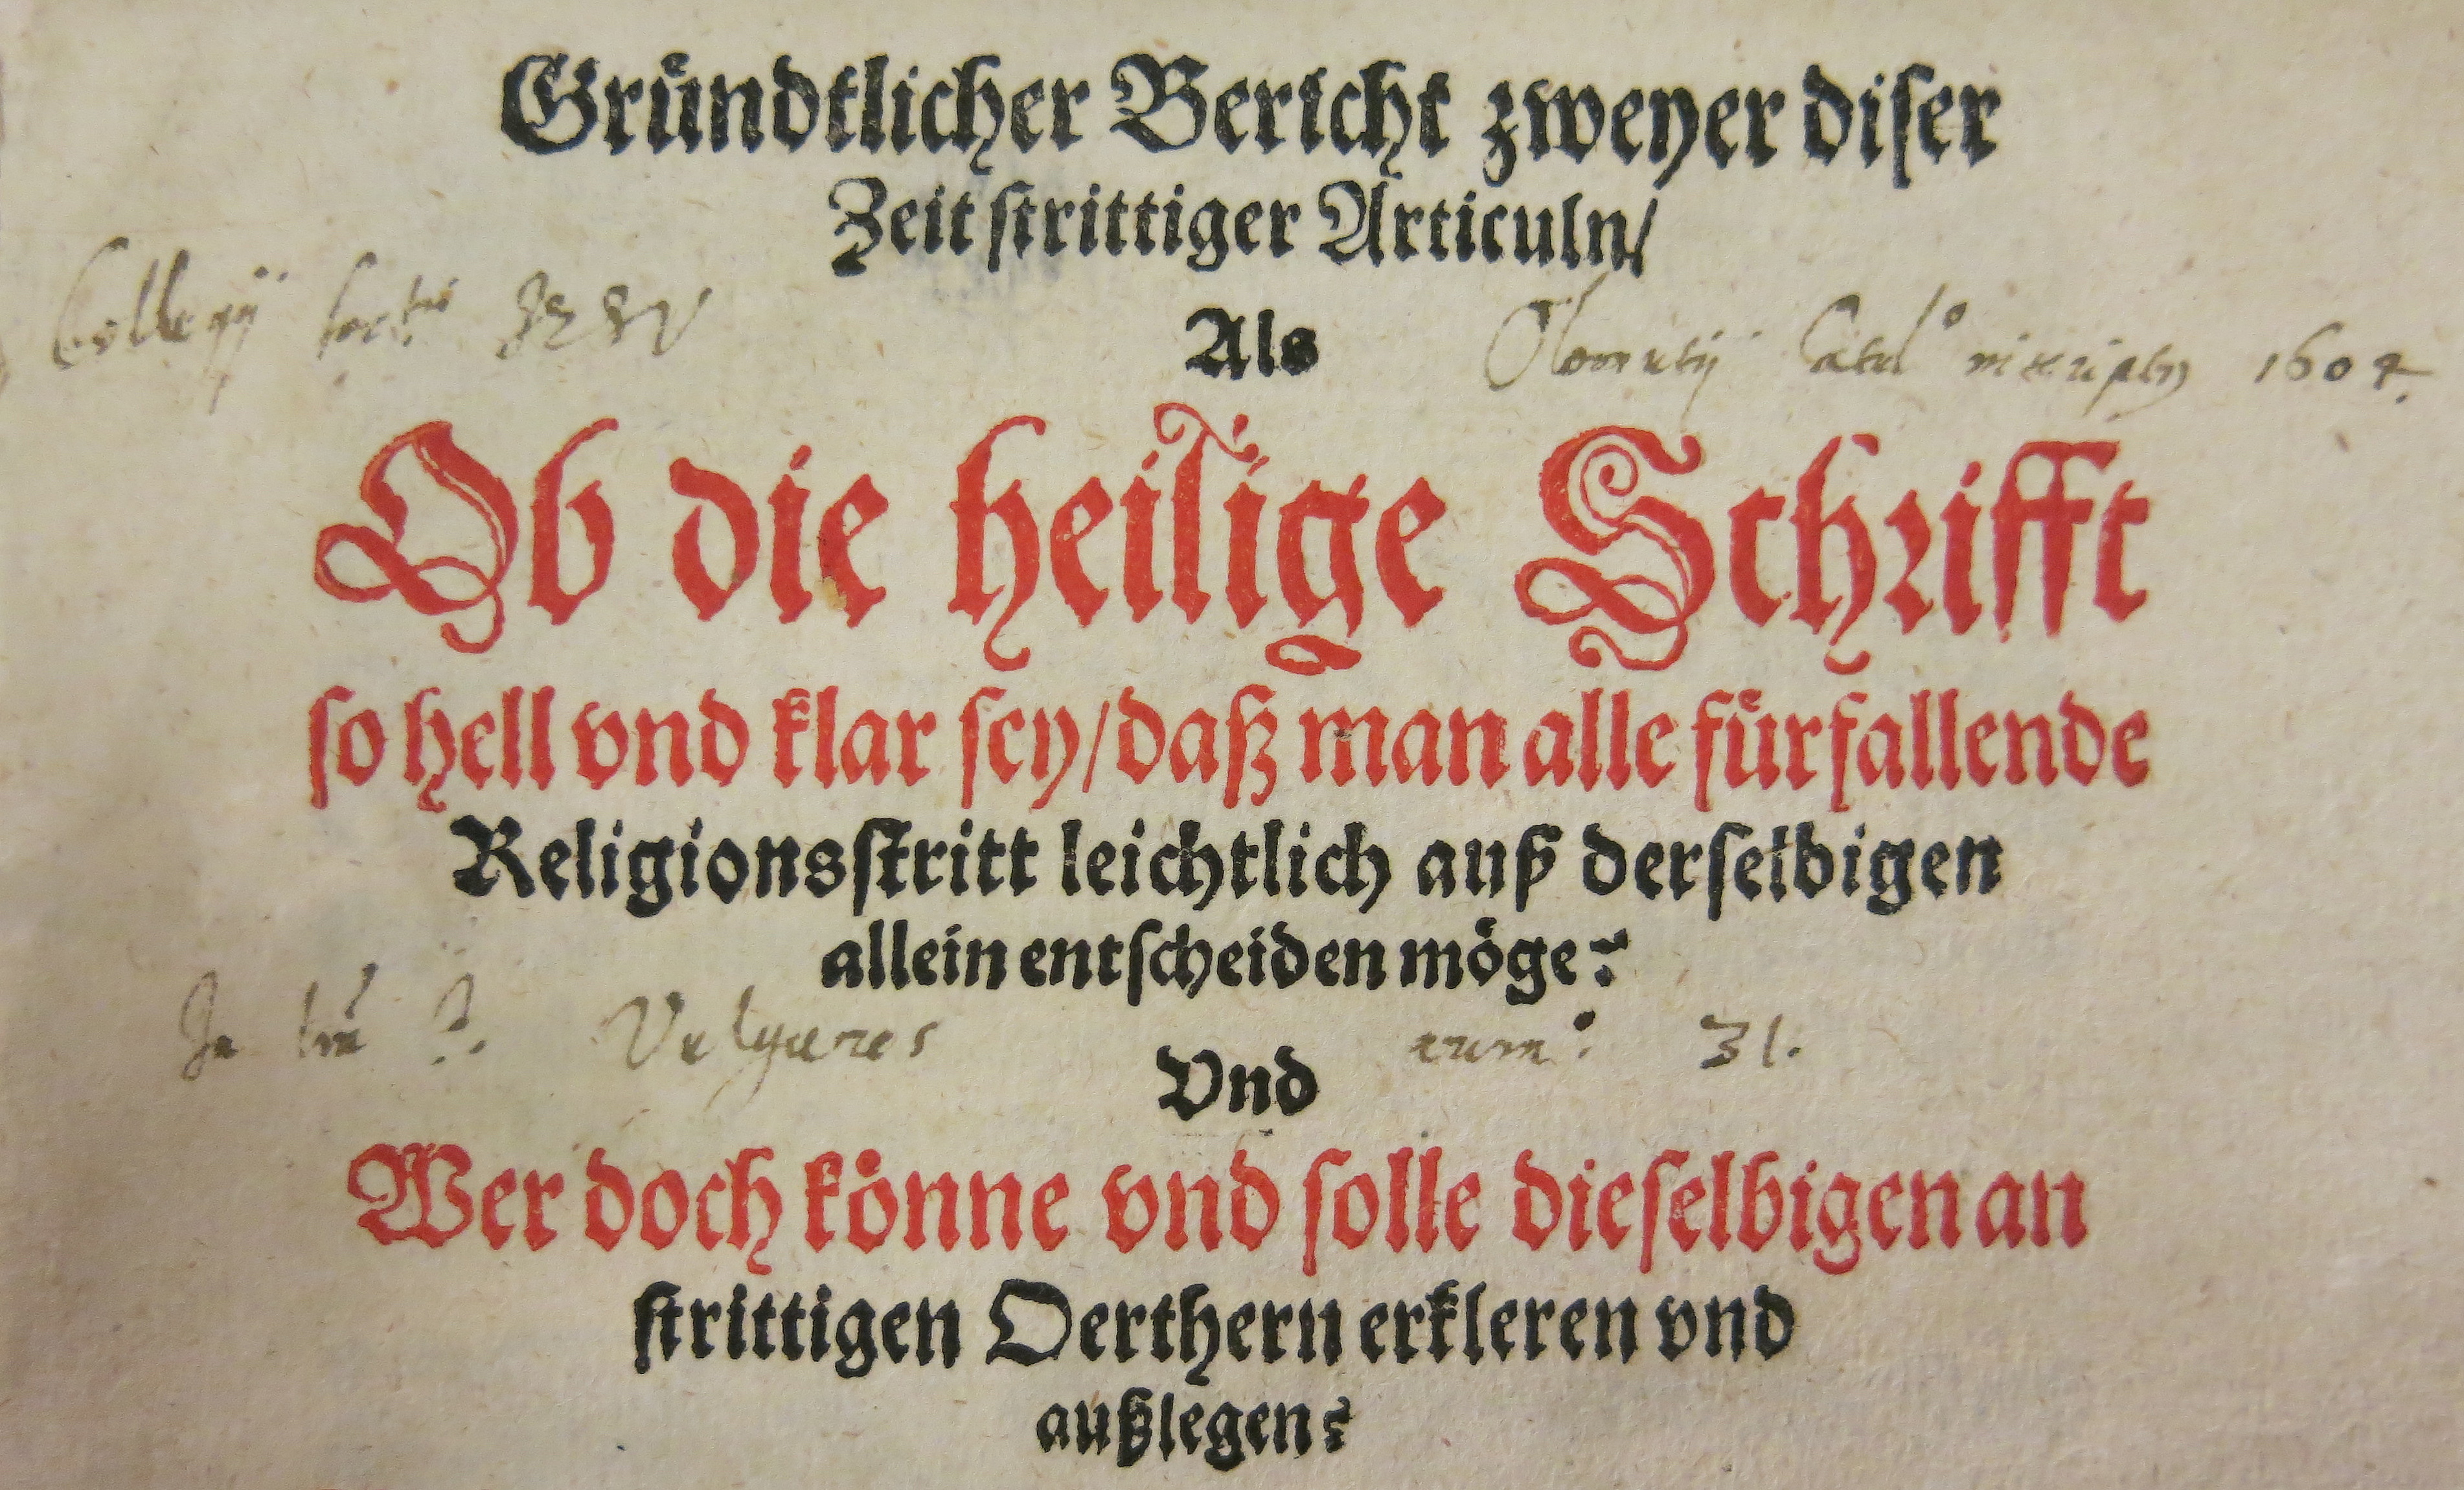 Gruͤndtlicher Bericht zweyer diſer
Zeit ſtrittiger Articuln/
Collegij Soctis IESV
Als
Olomutij Catalo inscriptus 1604.
Ob die heilige Schrifft
ſo hell vnd klar ſey/daß man alle fuͤrfallende
Religionsſtritt leichtlich auß derſelbigen
allein entſcheiden moͤge?
In
Vulgares
num: 31.
Vnd
Wer doch koͤnne vnd ſolle dieſelbigen an
ſtrittigen Oerthern erkleren vnd
außlegen?